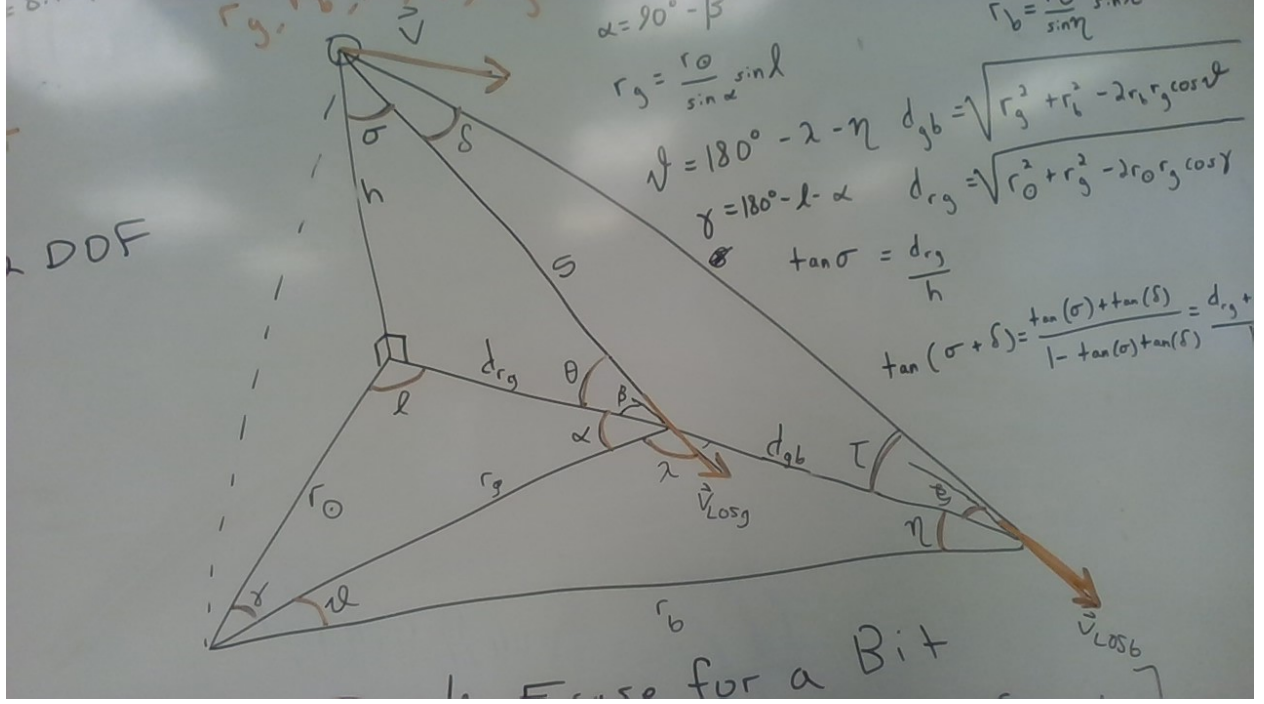 α = 90° - β
r_b = sinη
r_g = r_⊙ / sin α sin l
ϑ = 180° - λ - η
d_gb = √(r_g² + r_b² - 2r_b r_g cosϑ)
γ = 180° - l - α
d_rg = √(r_⊙² + r_g² - 2r_⊙ r_g cosγ)
tan σ = d_rg / h
tan(σ + δ) = (tan(σ) + tan(δ)) / (1 - tan(σ)tan(δ)) = d_rg +
DOF
V⃗
σ
δ
h
S
d_rg
θ
β
l
α
λ
d_gb
τ
V⃗_LOSg
r_⊙
r_g
η
γ
ϑ
r_b
V⃗_LOSb
for a Bit